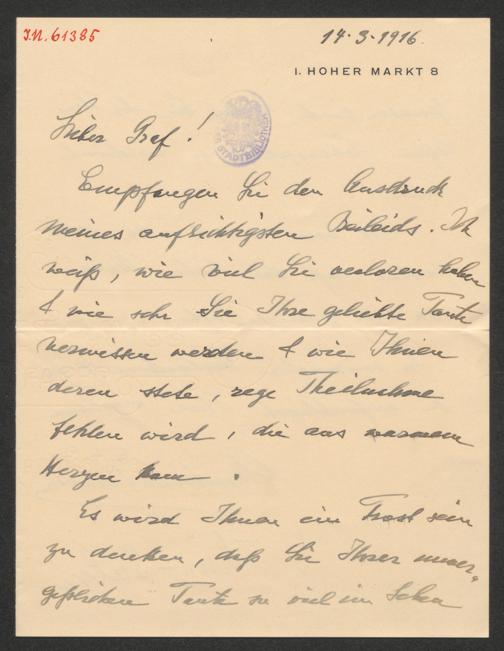 I.N. 61385
14.3.1916.
I. HOHER MARKT 8
STADTBIBLIOTHEK
Lieber Graf!
Empfangen Sie den Ausdruck
meines aufrichtigsten Beileids. Ich
weiß, wie viel Sie verloren haben
& wie sehr Sie Ihre geliebte Tante
vermissen werden & wie Ihnen
deren stete, rege Theilnahme
fehlen wird, die aus warmem
Herzen kam.
Es wird Ihnen ein Trost sein
zu denken, daß Sie Ihrer unver„
geßlichen Tante so viel im Leben